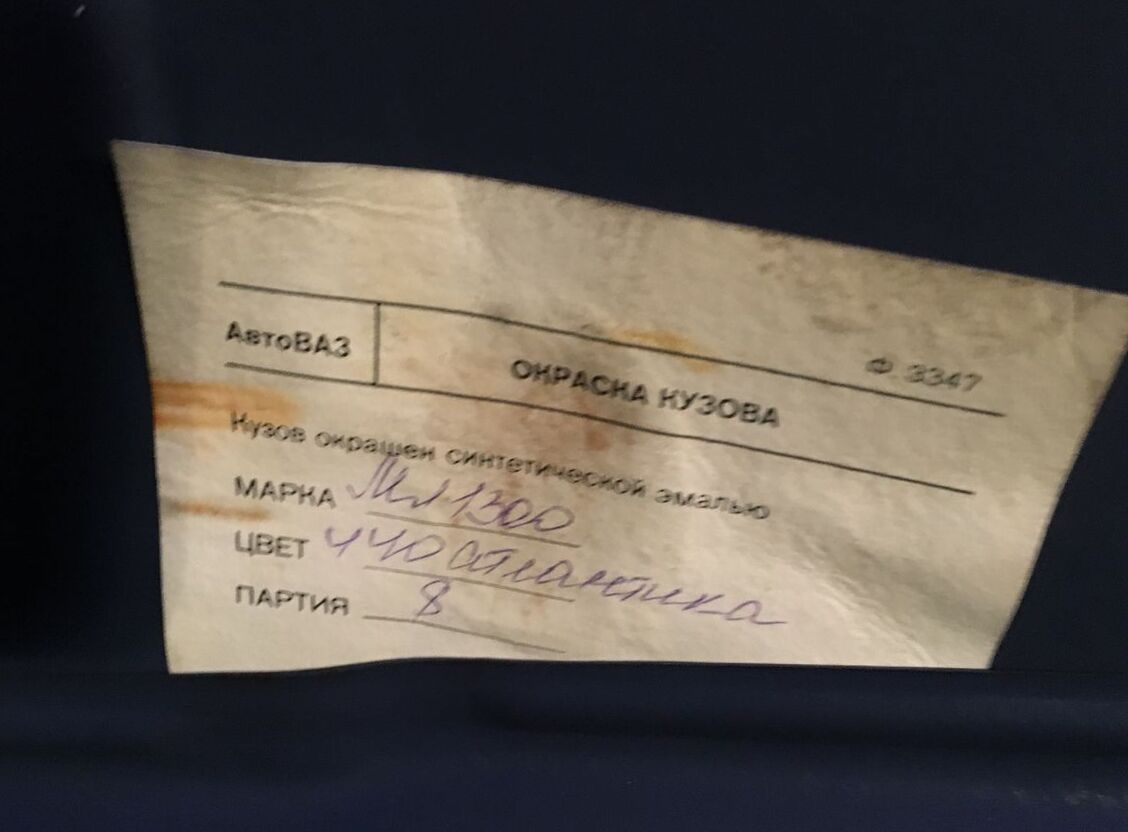 АвтоВАЗ
ОКРАСКА КУЗОВА
Ф 3347
Кузов окрашен синтетической эмалью
МАРКА Мл 1300
ЦВЕТ 440 атлантика
ПАРТИЯ 8